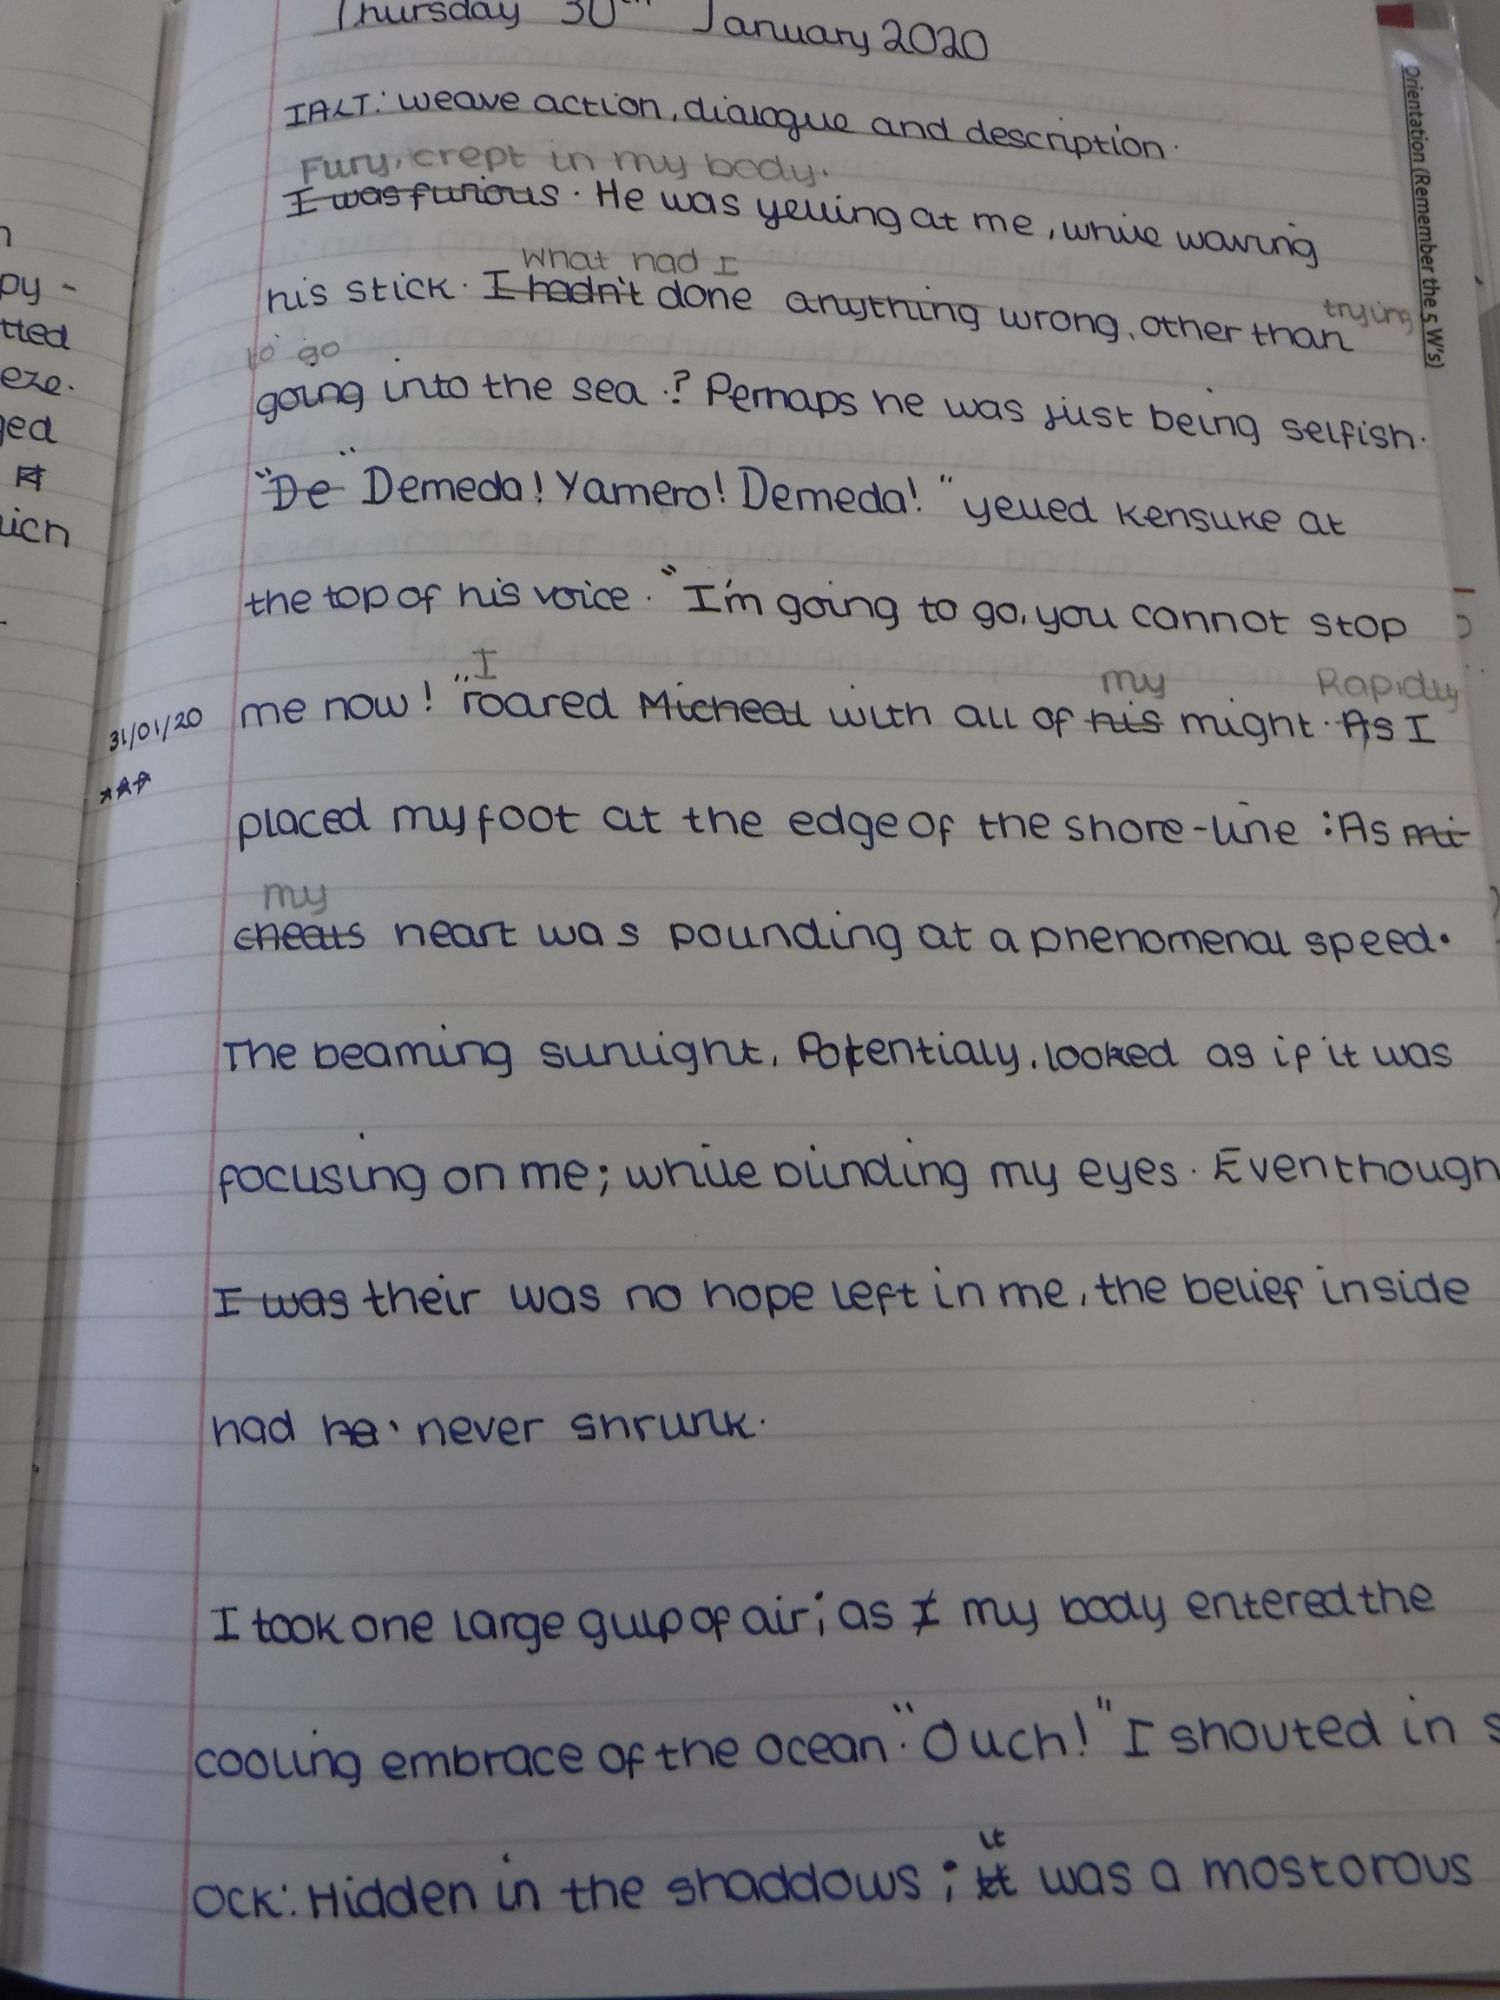 Thursday 30th January 2020
IALT: weave action, dialogue and description.
Fury, crept in my body.
I was furious. He was yelling at me, while waving
what had I
his stick. I hadn't done anything wrong, other than
trying
to go
going into the sea.? Perhaps he was just being selfish.
"De" Demeda! Yamero! Demeda!" yelled Kensuke at
the top of his voice. "I'm going to go, you cannot stop
I my Rapidly
31/01/20 me now!" roared Micheal with all of his might. As I
placed my foot at the edge of the shore-line: As mi
my
cheals heart was pounding at a phenomenal speed.
The beaming sunlight, Potentialy, looked as if it was
focusing on me; while blinding my eyes. Even though
I was their was no hope left in me, the belief inside
had he. never shrunk.
I took one large gulp of air; as I my body entered the
cooling embrace of the ocean. "Ouch!" I shouted in s
it
ock: Hidden in the shaddows; it was a mostorous
Orientation (Remember the 5 W's)
py -
tted
eze.
ged
ich